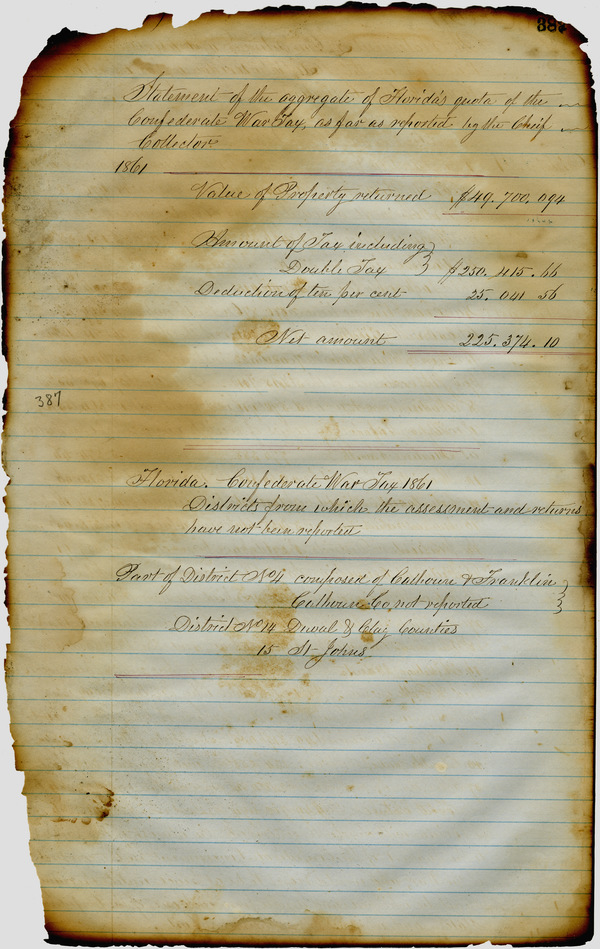 Statement of the aggregate of Florida's quota of the
Confederate War Tax, as far as reported by the Chief
Collector
1861
Value of Property returned $49.700.094
Amount of Tax including
Double Tax $250.415.66
Deduction of ten per cent 25.041 56
Net amount 225.374.10
387
Florida. Confederate War Tax 1861
Districts from which the assessment and returns
have not been reported
Part of District No 4 composed of Calhoun & Franklin
Calhoun Co. not reported
District No 14 Duval & Clay Counties
15 St Johns